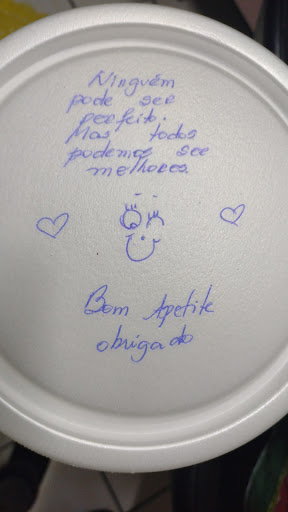 Ninguém
pode ser
perfeito.
Mas todos
podemos ser
melhores.
Bom Apetite
obrigado